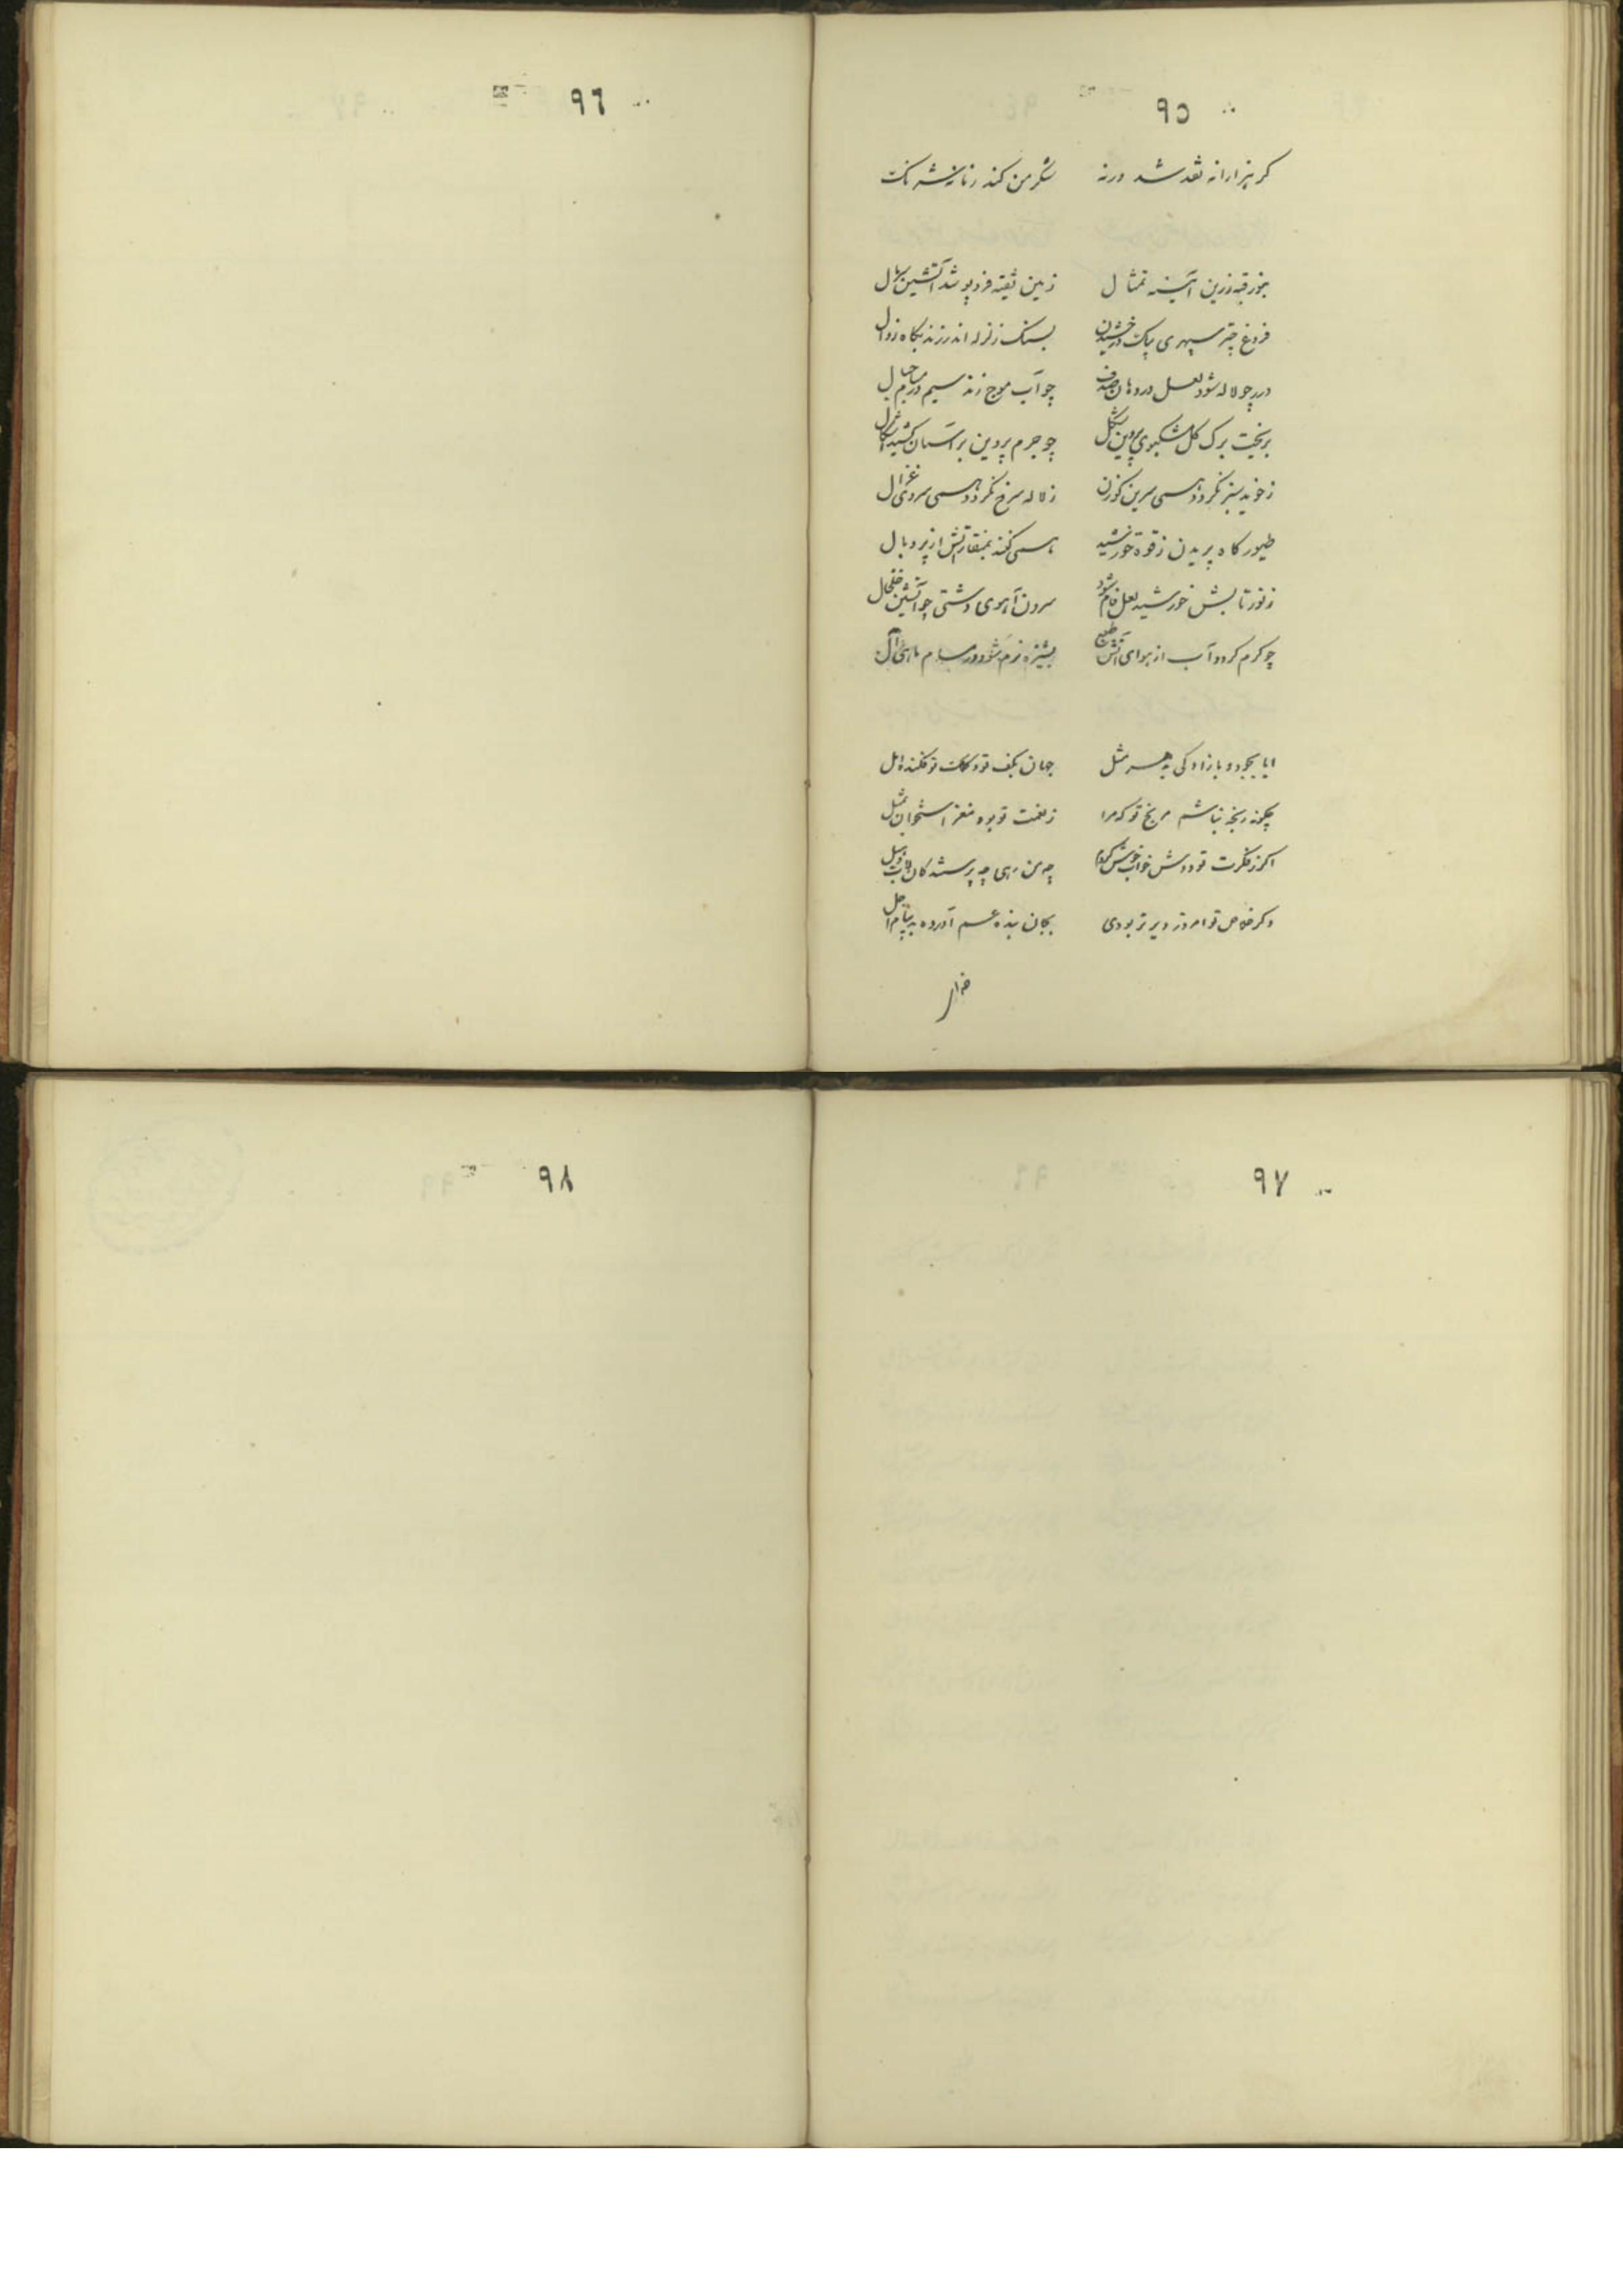 ۹۵
کر هزارانه نقد شد ورنه شکر من کند زمانه شرنک
بنور قبه زرین آینه تمثال زمین تفته فرو پوشد آتشین سربال
فروغ چتر سپهری بیک درخشیدن بسنک زلزله اندر زند بکاه زوال
درر چو لاله شود لعل در دهان صدف چو آب موج زند سیم در
بریخت برک کل مشکبوی پروین شکل چو جرم پروین بر آسمان کشید
ز خوید سبز نکردد همی سرین کوزن ز لاله سرخ نکردد همی سروی غزال
طیور کاه پریدن ز قوة خورشید همی کنند بمنقار آتش از پر و بال
ز نور تابش خورشید لعل فام شود سرون آهوی دشتی چو آتشین خلخال
چو کرم کردد آب از هوای آتش طبع پشیزه نرم شود در مسام ماهی
ایا بجود و بازادکی بدهر مثل جهان بکف تو و کلک تو فکنده امل
چکونه رنجه نباشم برنج تو که مرا ز نعمت تو بود مغز استخوان بمثل
اکر ز فکرت تو دوش خواب خوش کردم چه من رهی چه پرستندکان لات و هبل
وکر خلاص تو امروز دیرتر بودی بجان بنده غم آورده بد پیام اجل
۹٦
۹۷
۹۸